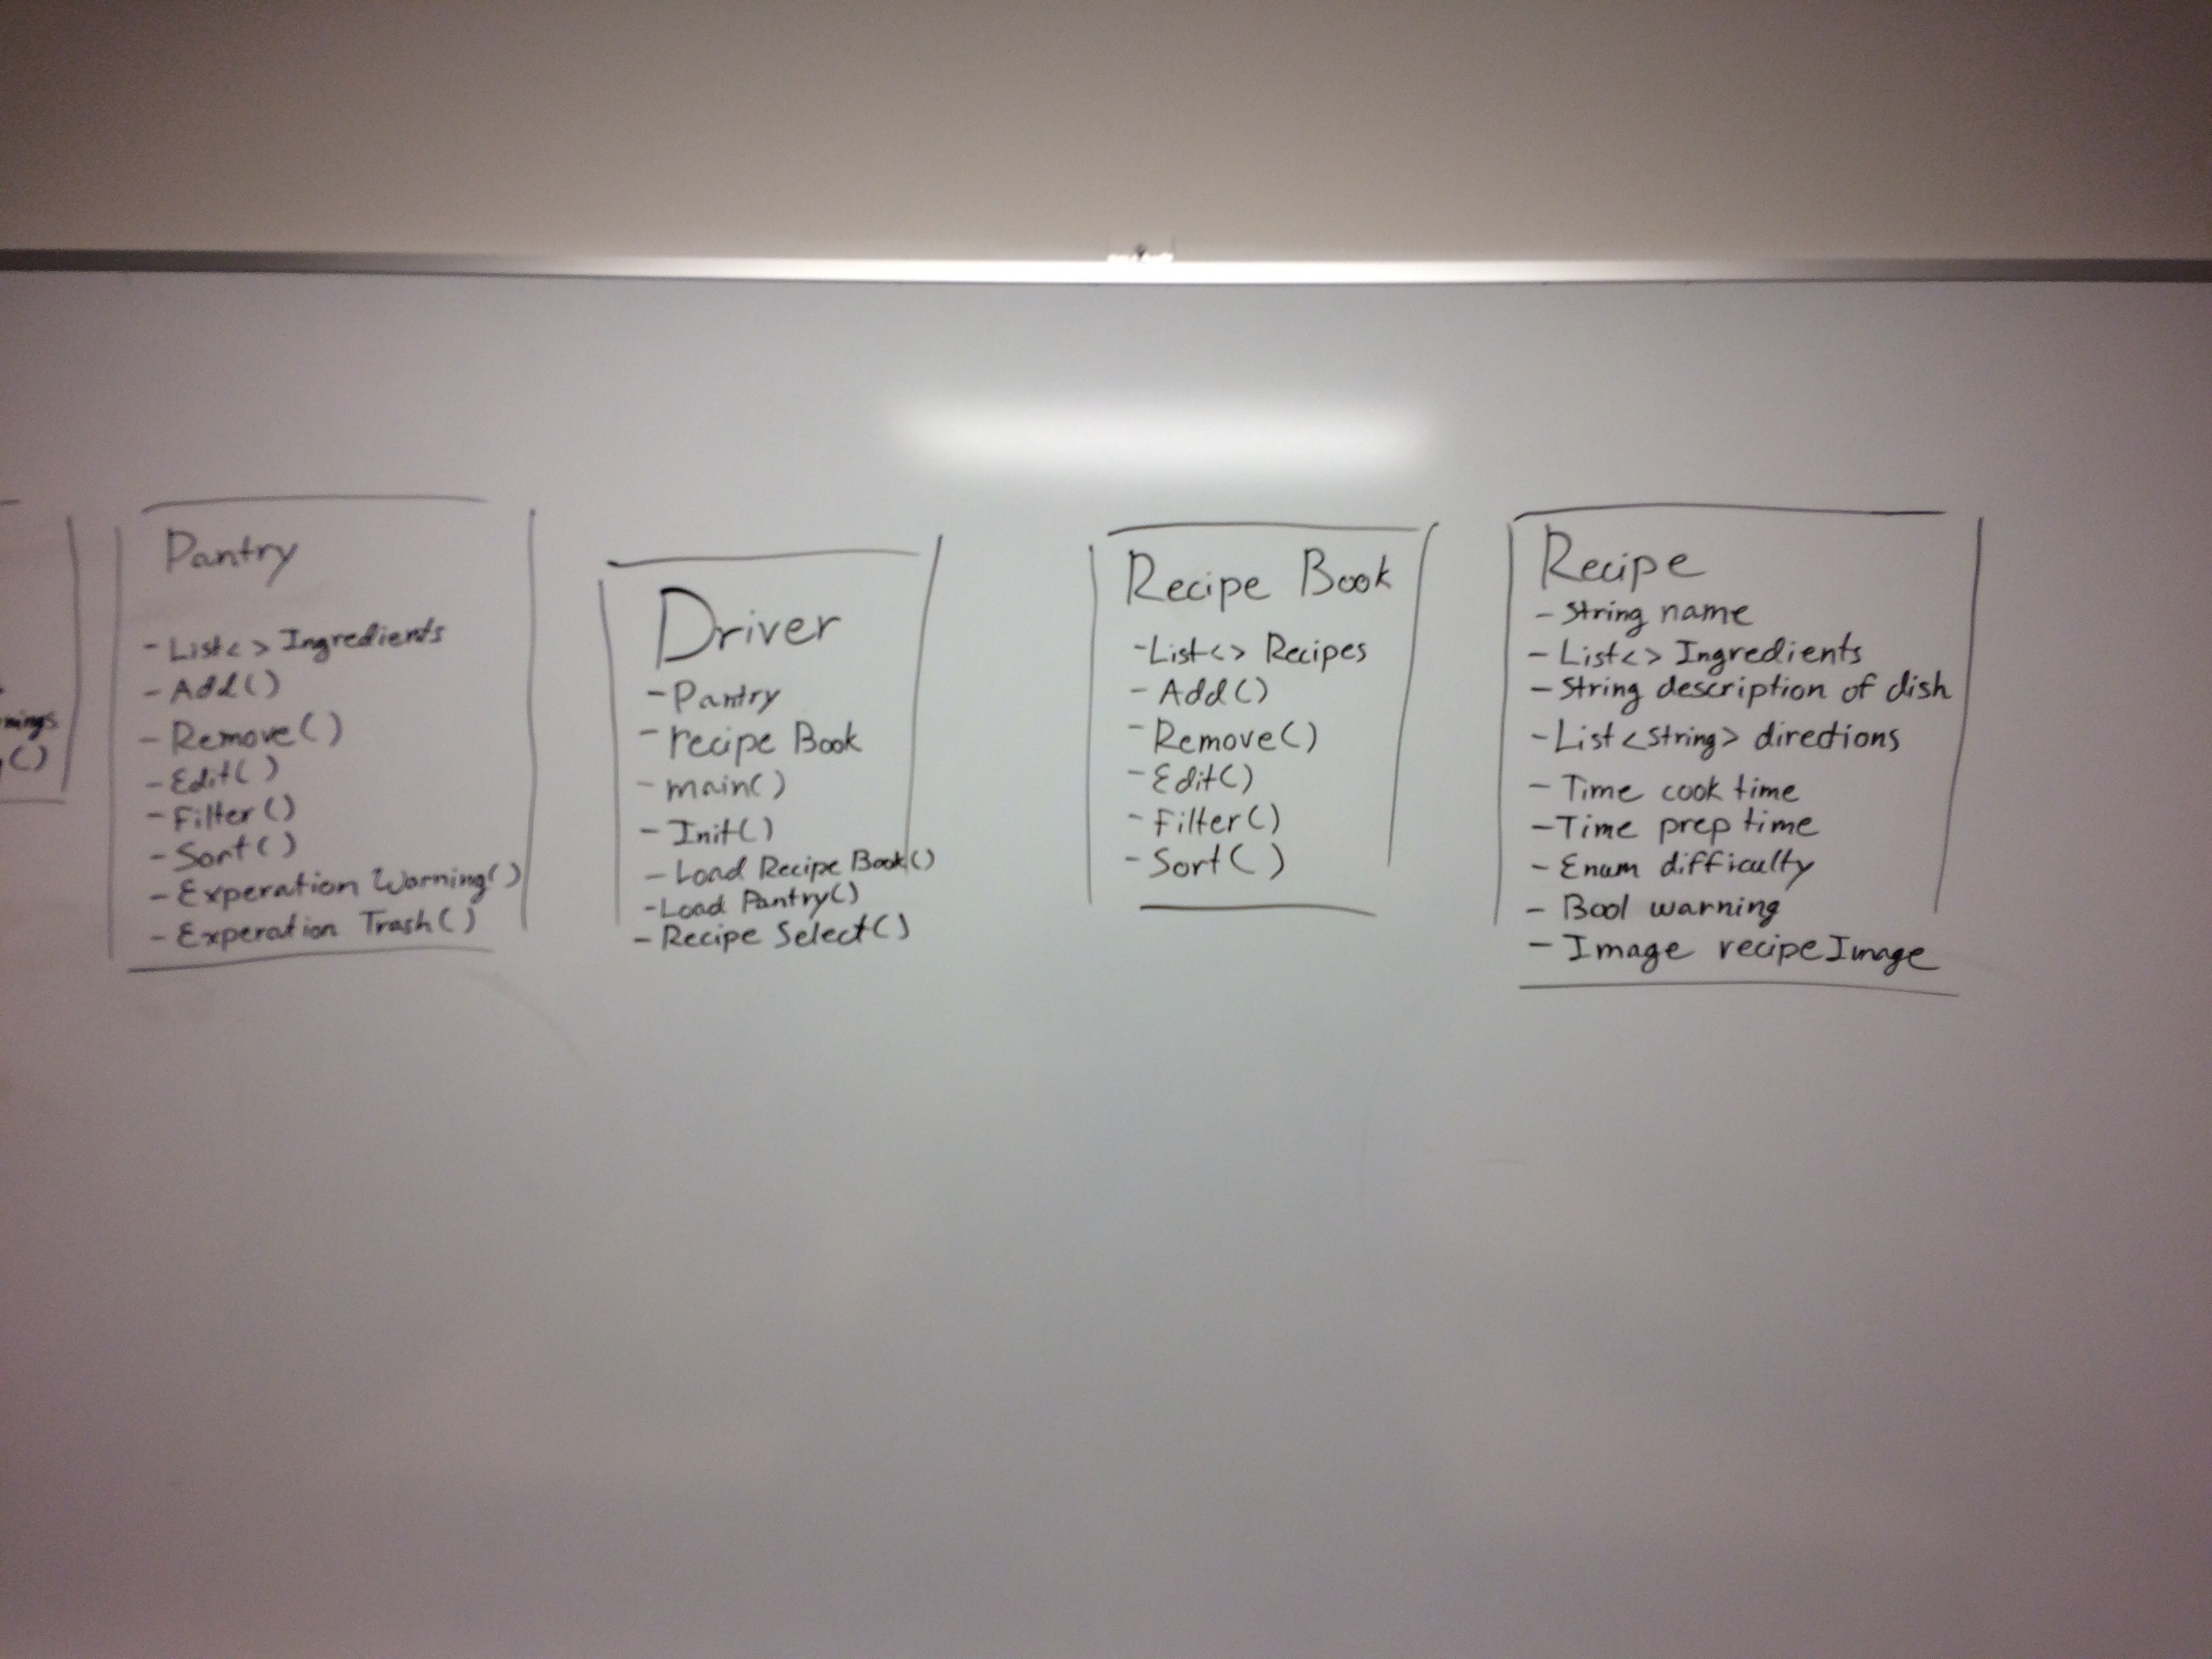 mings
()
Pantry
- List<> Ingredients
- Add()
- Remove()
- Edit()
- Filter()
- Sort()
- Experation Warning()
- Experation Trash()
Driver
- Pantry
- recipe Book
- main()
- Init()
- Load Recipe Book()
- Load Pantry()
- Recipe Select()
Recipe Book
- List<> Recipes
- Add()
- Remove()
- Edit()
- Filter()
- Sort()
Recipe
- String name
- List<> Ingredients
- String description of dish
- List<String> directions
- Time cook time
- Time prep time
- Enum difficulty
- Bool warning
- Image recipeImage